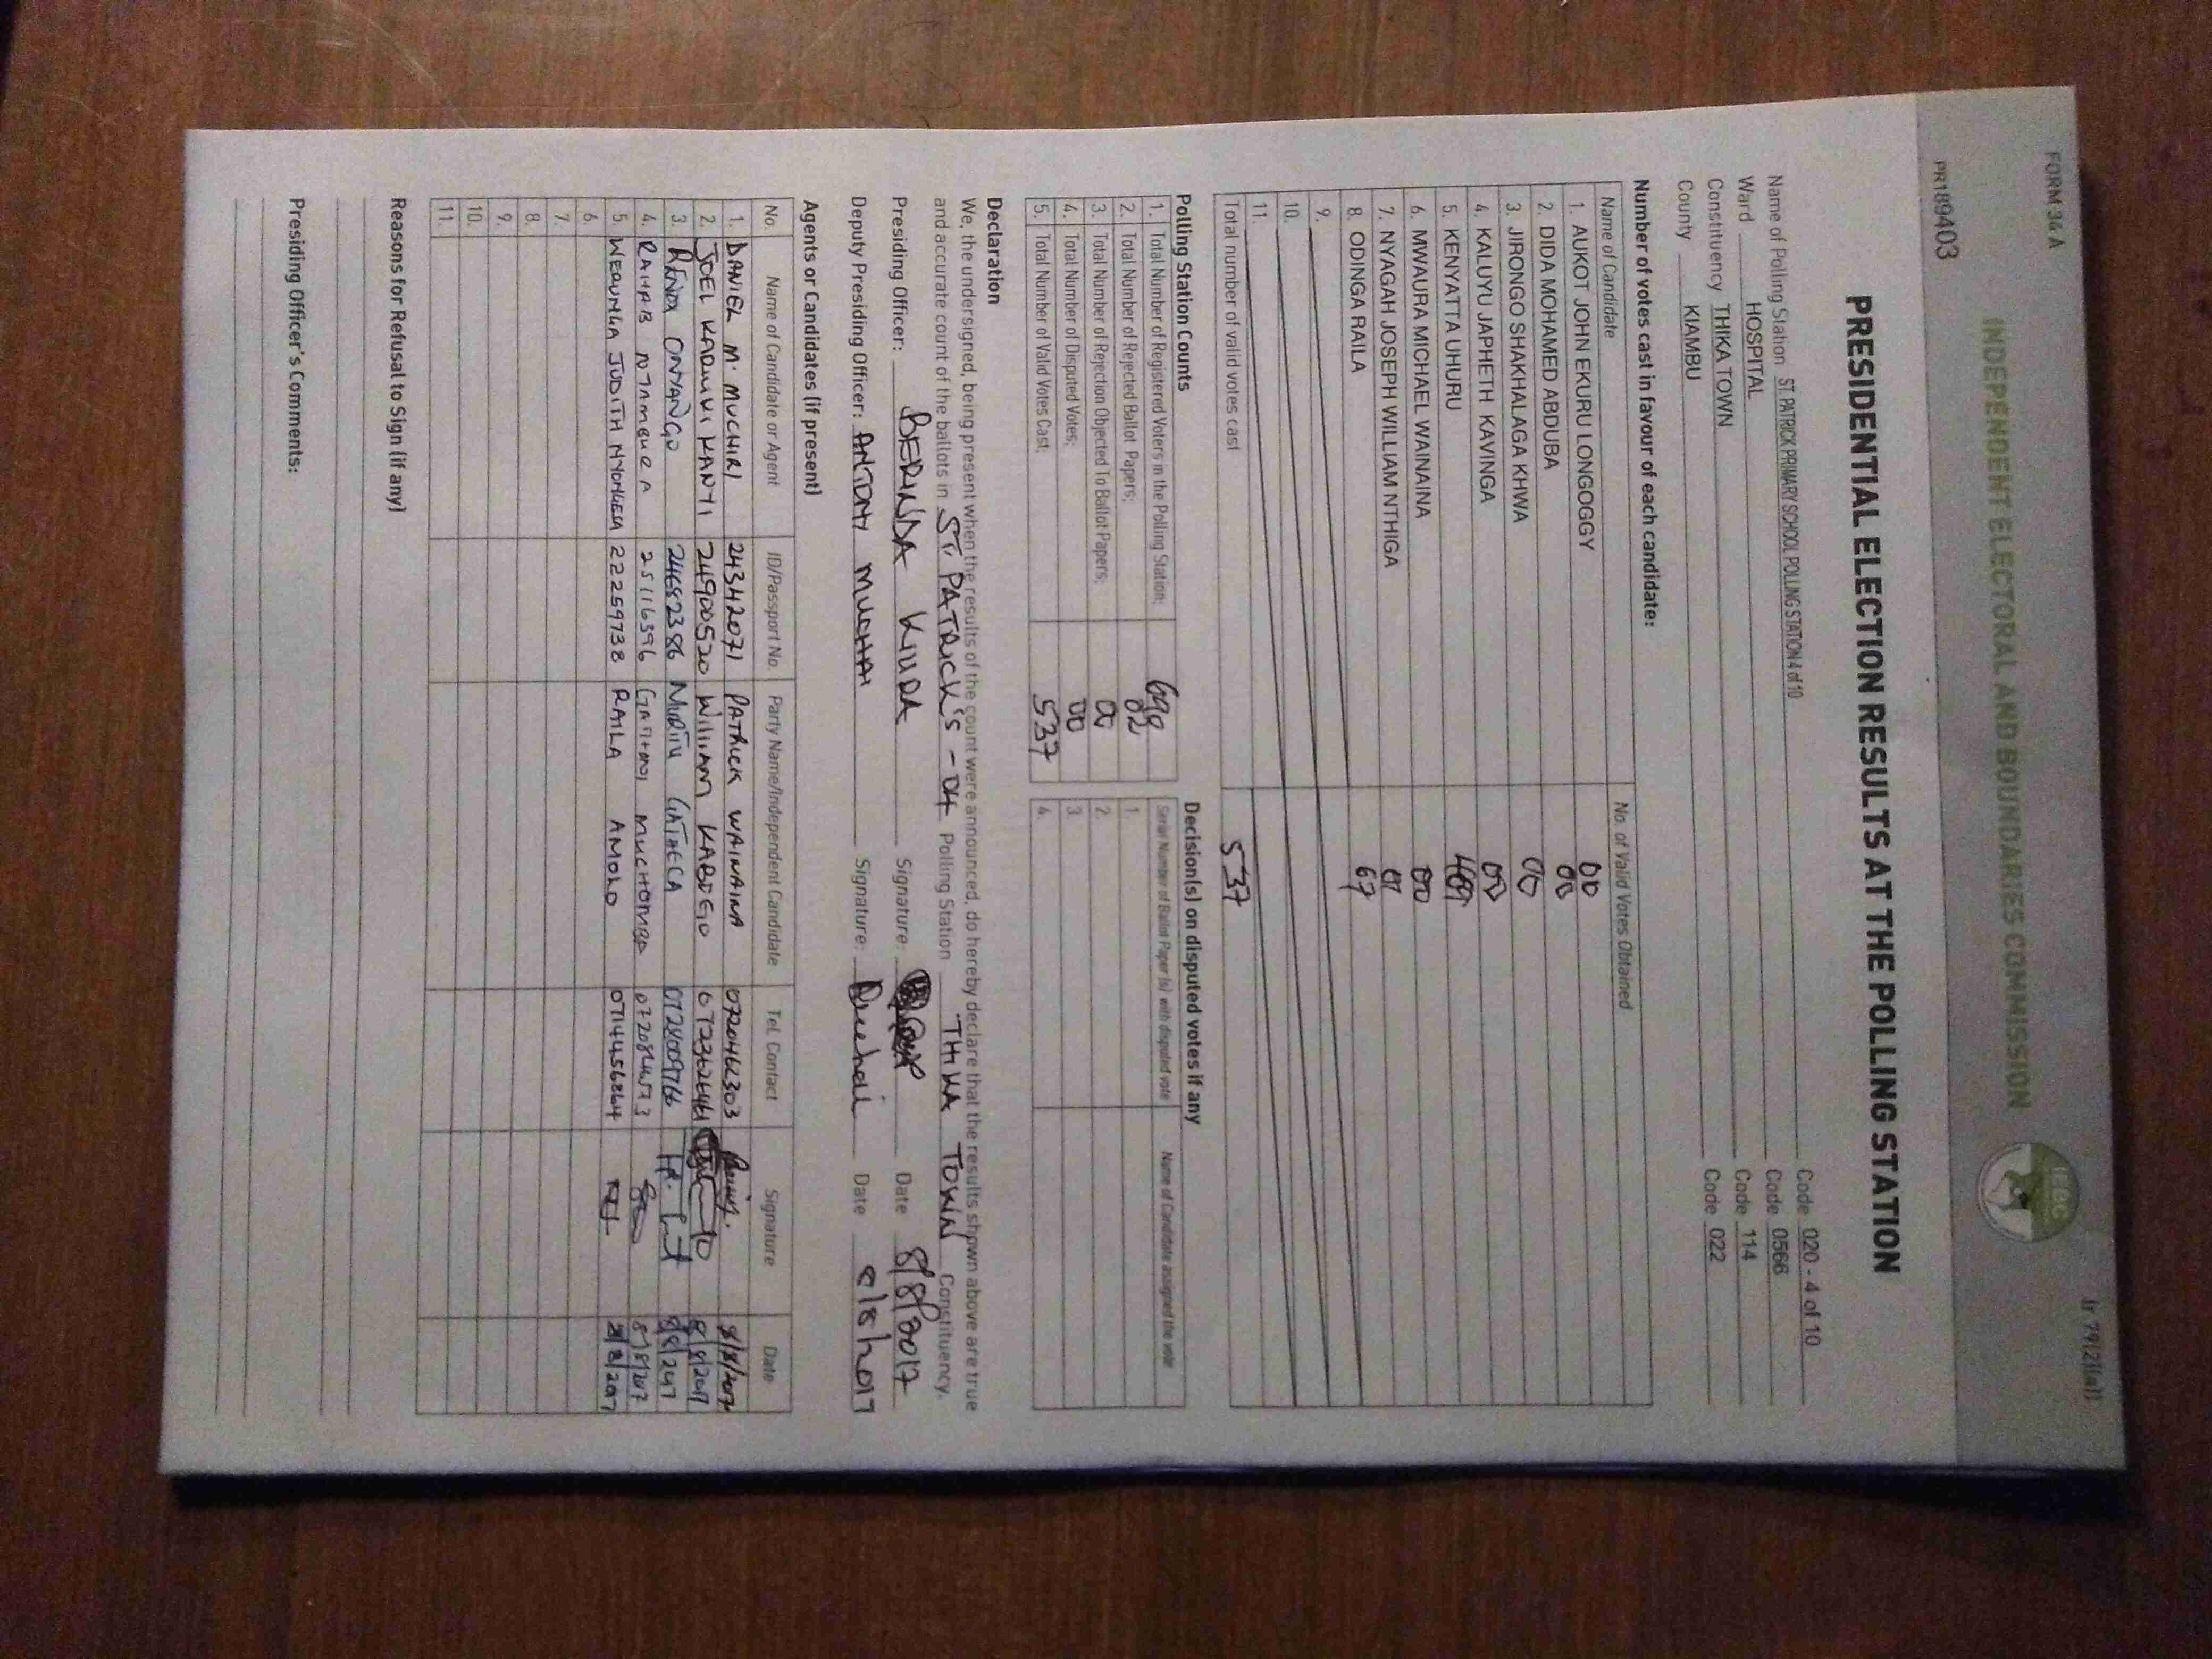 FORM 34 A
(r 79(2)(a))
INDEPENDENT ELECTORAL AND BOUNDARIES COMMISSION
IEBC
PR189403
PRESIDENTIAL ELECTION RESULTS AT THE POLLING STATION
Name of Polling Station ST. PATRICK PRIMARY SCHOOL POLLING STATION 4 of 10 Code 020 - 4 of 10
Ward HOSPITAL Code 0566
Constituency THIKA TOWN Code 114
County KIAMBU Code 022
Number of votes cast in favour of each candidate:
Name of Candidate No. of Valid Votes Obtained
1. AUKOT JOHN EKURU LONGOGGY 00
2. DIDA MOHAMED ABDUBA 00
3. JIRONGO SHAKHALAGA KHWA 00
4. KALUYU JAPHETH KAVINGA 00
5. KENYATTA UHURU 469
6. MWAURA MICHAEL WAINAINA 00
7. NYAGAH JOSEPH WILLIAM NTHIGA 01
8. ODINGA RAILA 67
9.
10.
11.
Total number of valid votes cast 537
Polling Station Counts
1. Total Number of Registered Voters in the Polling Station; 698
2. Total Number of Rejected Ballot Papers; 02
3. Total Number of Rejection Objected To Ballot Papers; 00
4. Total Number of Disputed Votes; 00
5. Total Number of Valid Votes Cast; 537
Decision(s) on disputed votes if any
Serial Number of Ballot Paper (s) with disputed vote Name of Candidate assigned the vote
1.
2.
3.
4.
Declaration
We, the undersigned, being present when the results of the count were announced, do hereby declare that the results shown above are true
and accurate count of the ballots in ST. PATRICK'S - 04 Polling Station THIKA TOWN Constituency.
Presiding Officer: BERINDA KIURA Signature: Date 8/8/2017
Deputy Presiding Officer: ANTONY MUCHAI Signature: Date 8/8/2017
Agents or Candidates (if present)
No. Name of Candidate or Agent ID/Passport No. Party Name/Independent Candidate Tel. Contact Signature Date
1. DANIEL M. MUCHIRI 24342071 PATRICK WAINAINA 0720466303 8/8/2017
2. JOEL KARIUKI KANYI 24900520 WILLIAM KABOGO 8/8/2017
3. ONYANGO 24682386 0728009766 8/8/2017
4. RAHAB 25116596 8/8/2017
5. JUDITH 22259738 RAILA AMOLO 0714456864 8/8/2017
6.
7.
8.
9.
10.
11.
Reasons for Refusal to Sign (if any)
Presiding Officer's Comments: